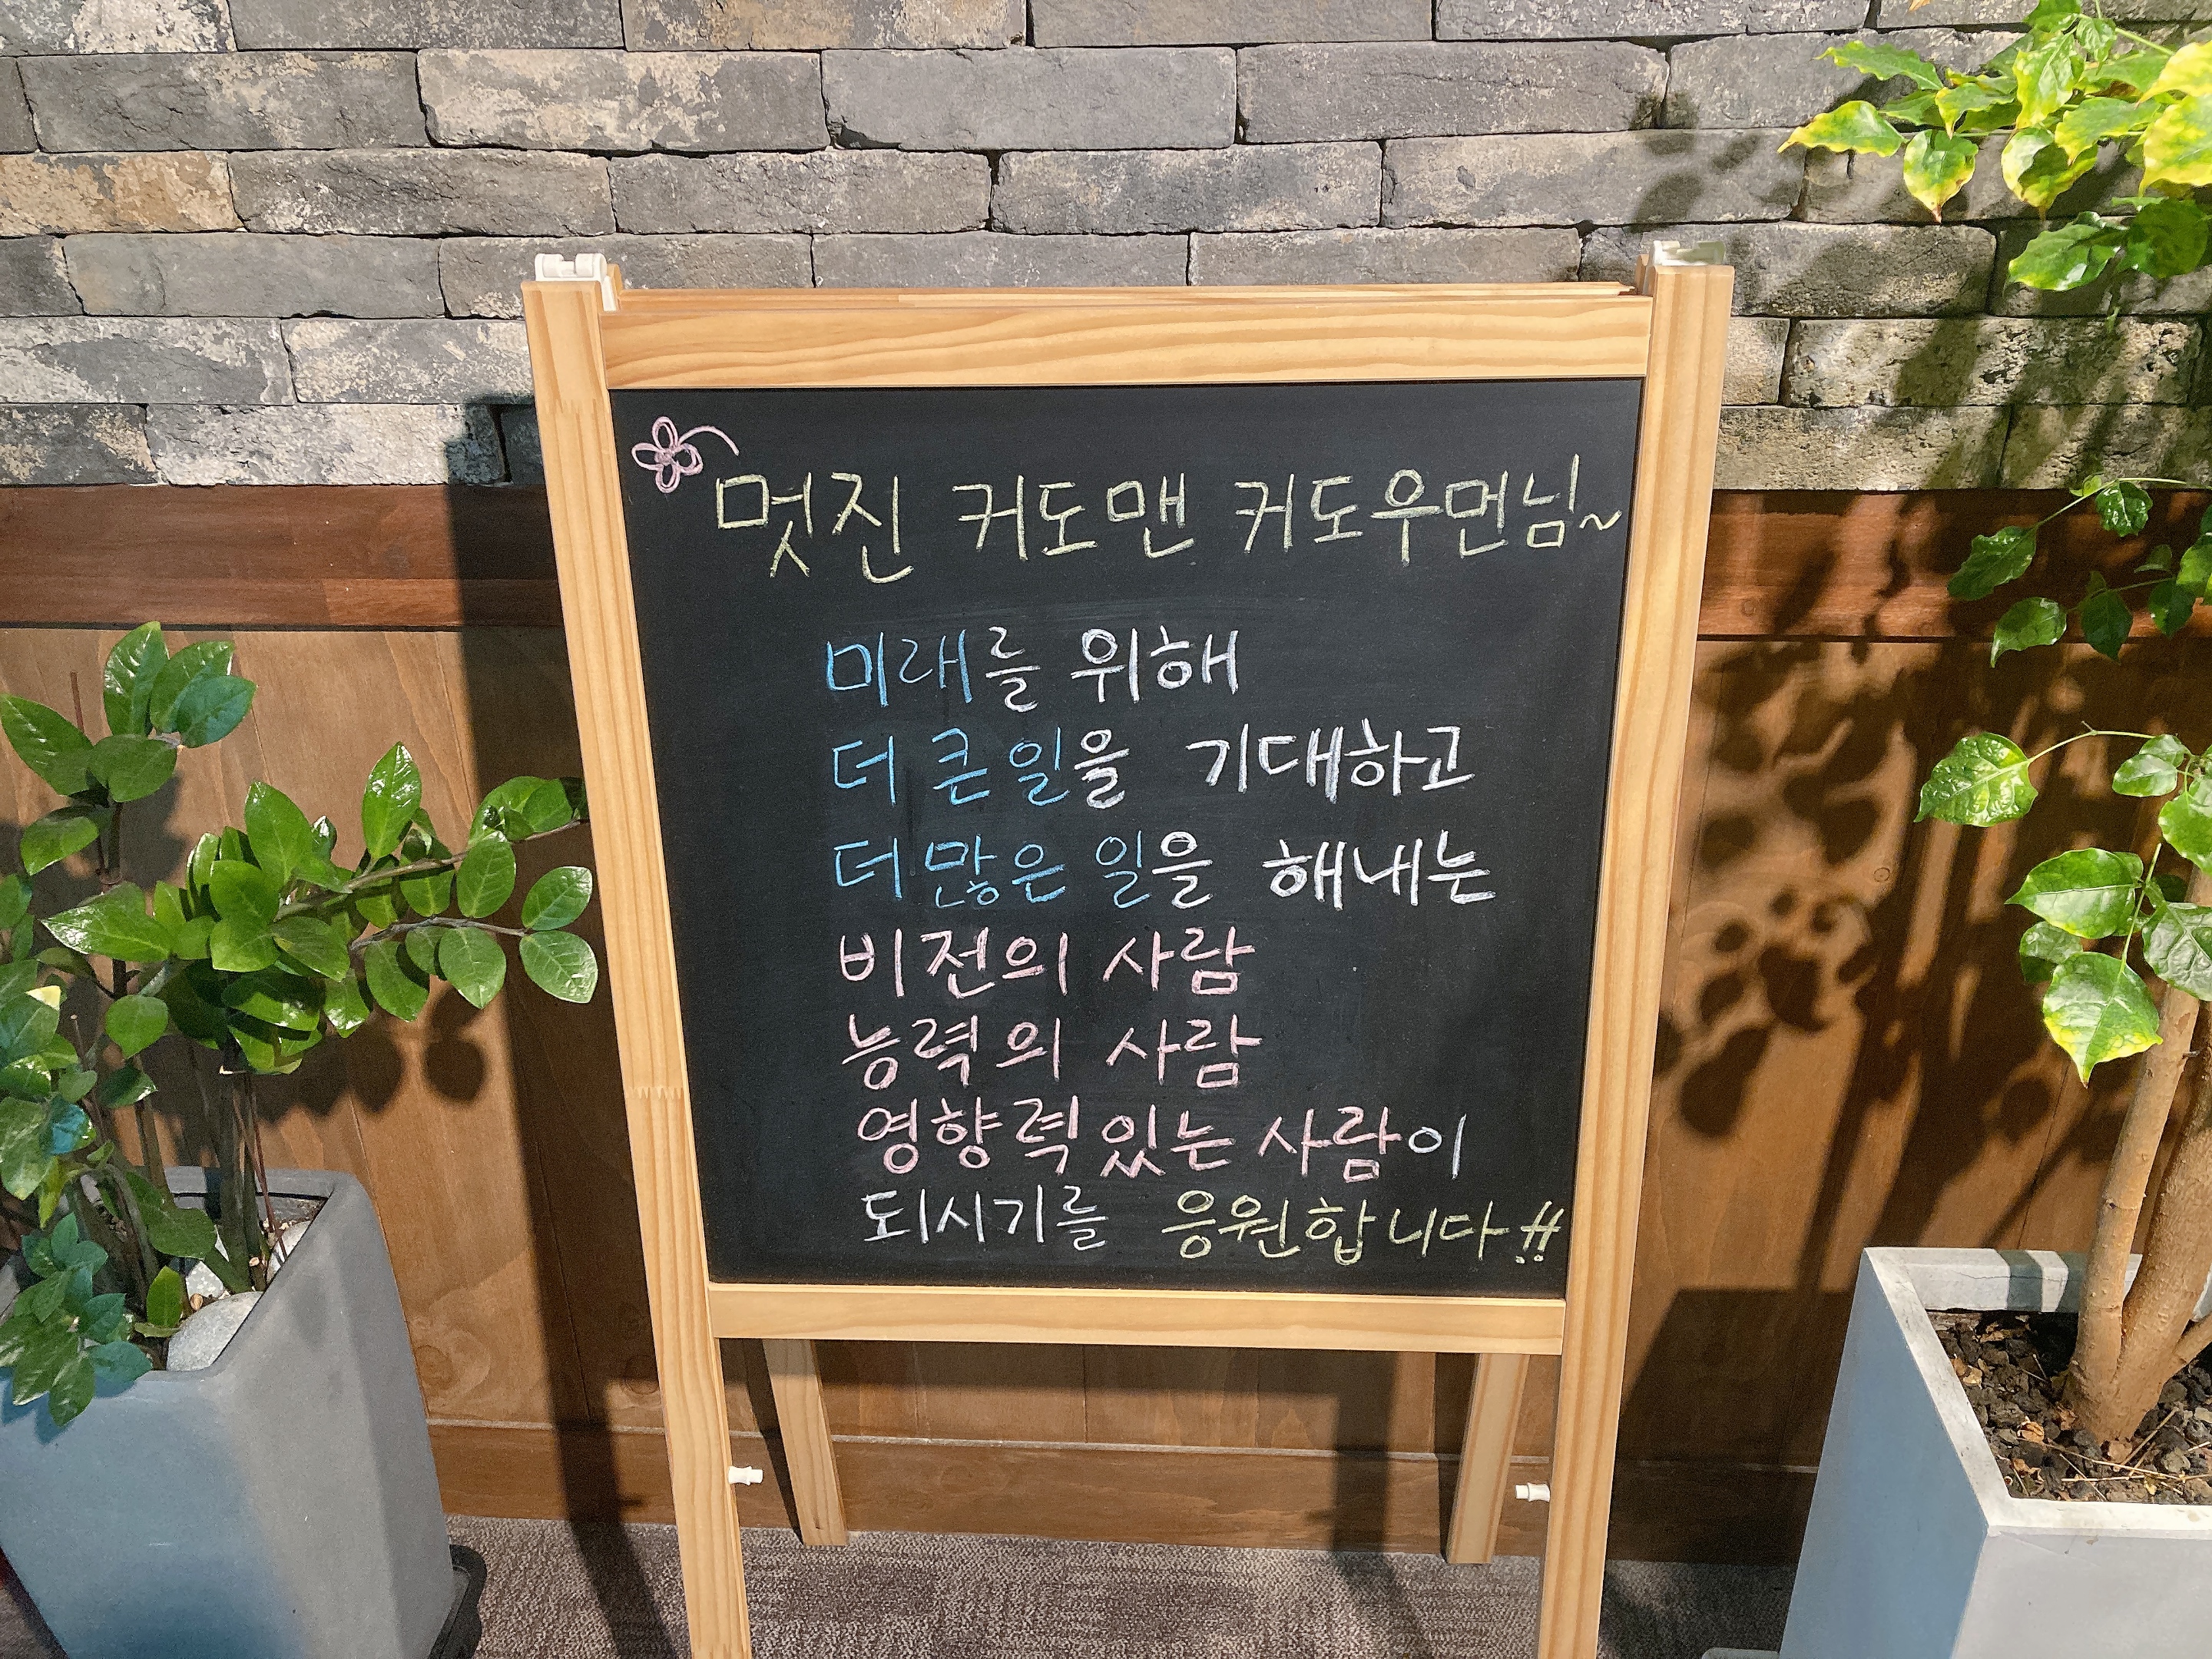 멋진 커도맨 커도우먼님~
미래를 위해
더 큰 일을 기대하고
더 많은 일을 해내는
비전의 사람
능력의 사람
영향력 있는 사람이
되시기를 응원합니다!!